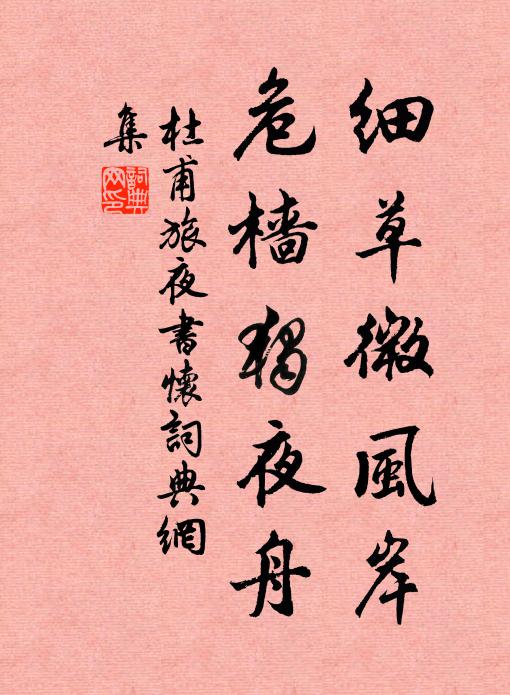 細草微風岸
危檣獨夜舟
杜甫旅夜書懷詞典網
集
詞典網印